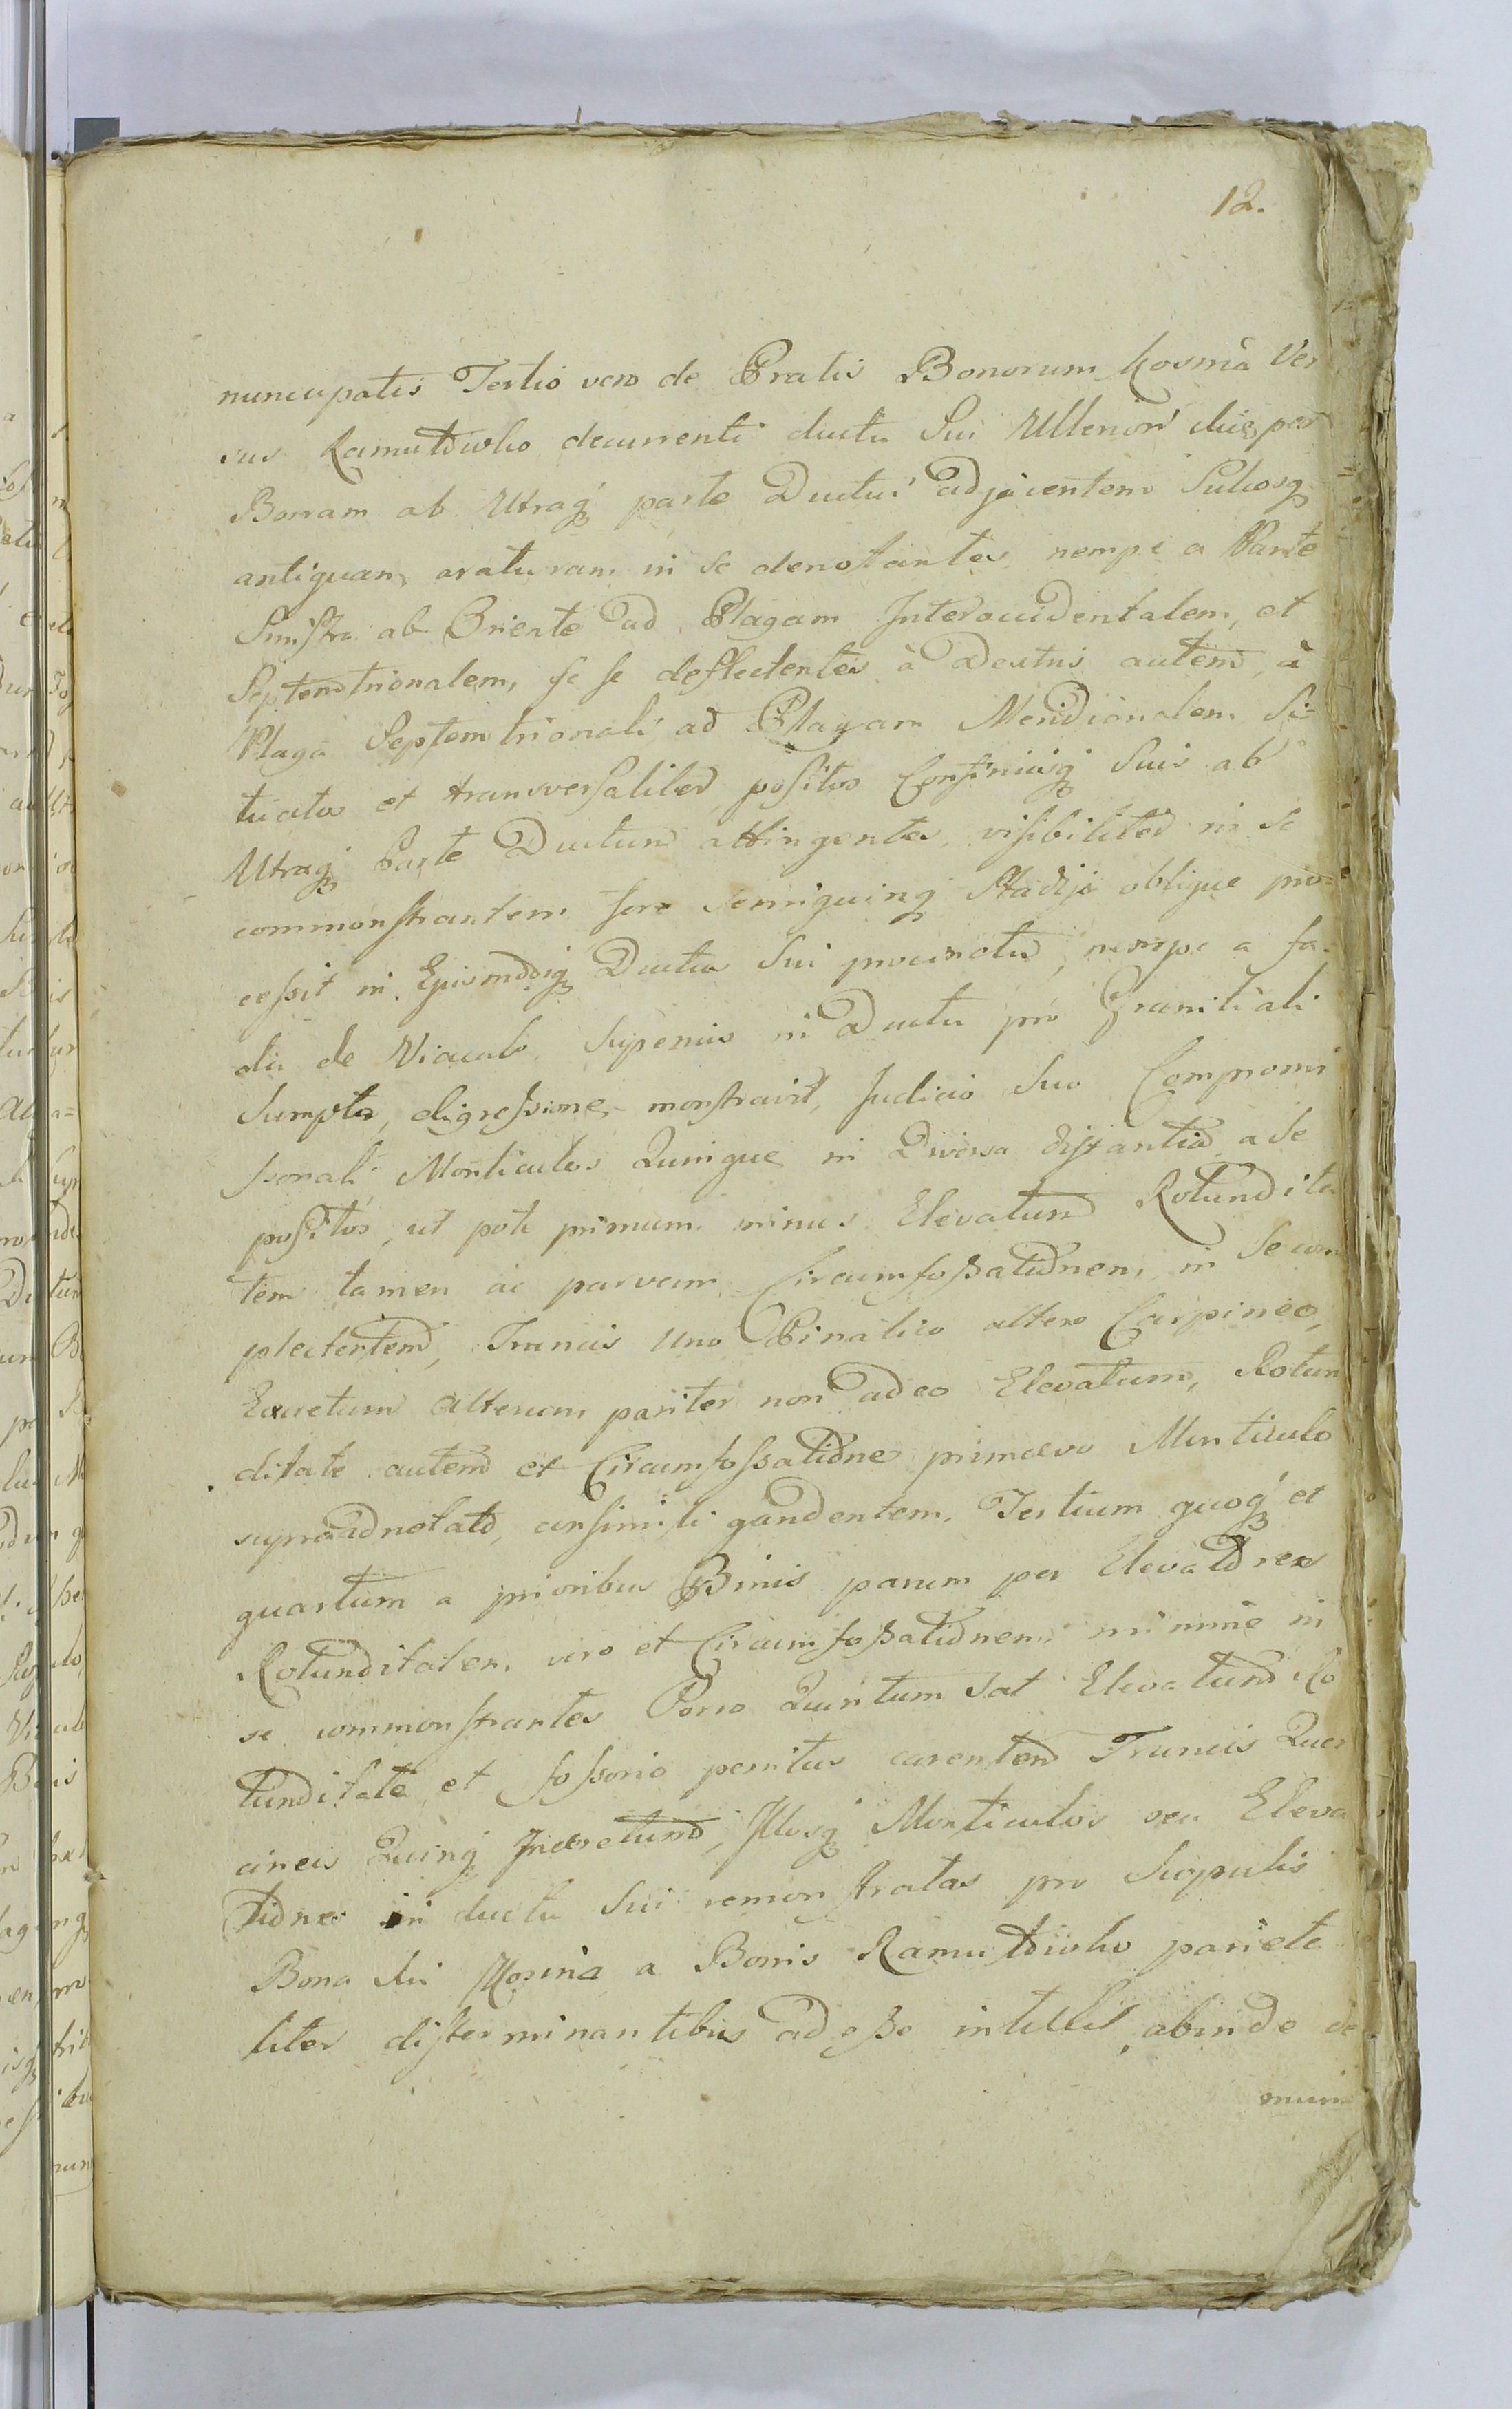 12.
nuncupatis Tertio vero de Pratis Bonorum Kosmà Ver
sus Ramutowho decurrenti ductu Sui Ulterior per
Borram ab Utraq parte Ductui adjacentem Sulcosq
antiquam araturam in se denotantes nempe a Parte
Sinistra ab Oriente ad Plagam Interoccidentalem, et
Septemtrionalem, se se deflectentes à Dextris autem à
Plaga Septemtrionali ad Plagam Meridionalem Si=
tuatos et transversaliter positos Confinijsq Suis ab
Utraq Parte Ductum attingentes visibiliter in se
commonstrantem fere semiquinq Stadija oblique pro=
cessit in Ejusmodiq Ductus Sui procinctu, nempe a fa=
cta de Viaculo Superius in Ductu pro Granitiali
Sumpto, digressione, monstravit, Judicio Suo Compromi
ssorali Monticulos Quinque in Diversa distantia a Se
positos, ut pote primum minus Elevatum Rotundita
tem tamen ac parvam Circumfossationem in Se com
plectentem, Truncis Uno Pinalico altero Carpineo,
Excretum alterum pariter non adeo Elevatum, Rotun
ditate autem et Circumfossatione primaevo Monticulo
supraadnotato, consimili gaudentem. Tertium quoq et
quartum a prioribus Binis parum per Elevatiores
Rotunditatem vero et Circumfossationem minime in
se commonstrantes Porro Quintum Sat Elevatum Ro
tunditate et fossorio penitus carentem Truncis Quer
cineis Quinq Incretum, Illosq Monticulos seu Eleva
tiones in ductu Sui remonstratas pro Scopulis
Bona Kosmà a Bonis Ramutowho pariete
liter disterminantibus adesse intulit, abinde de
mum